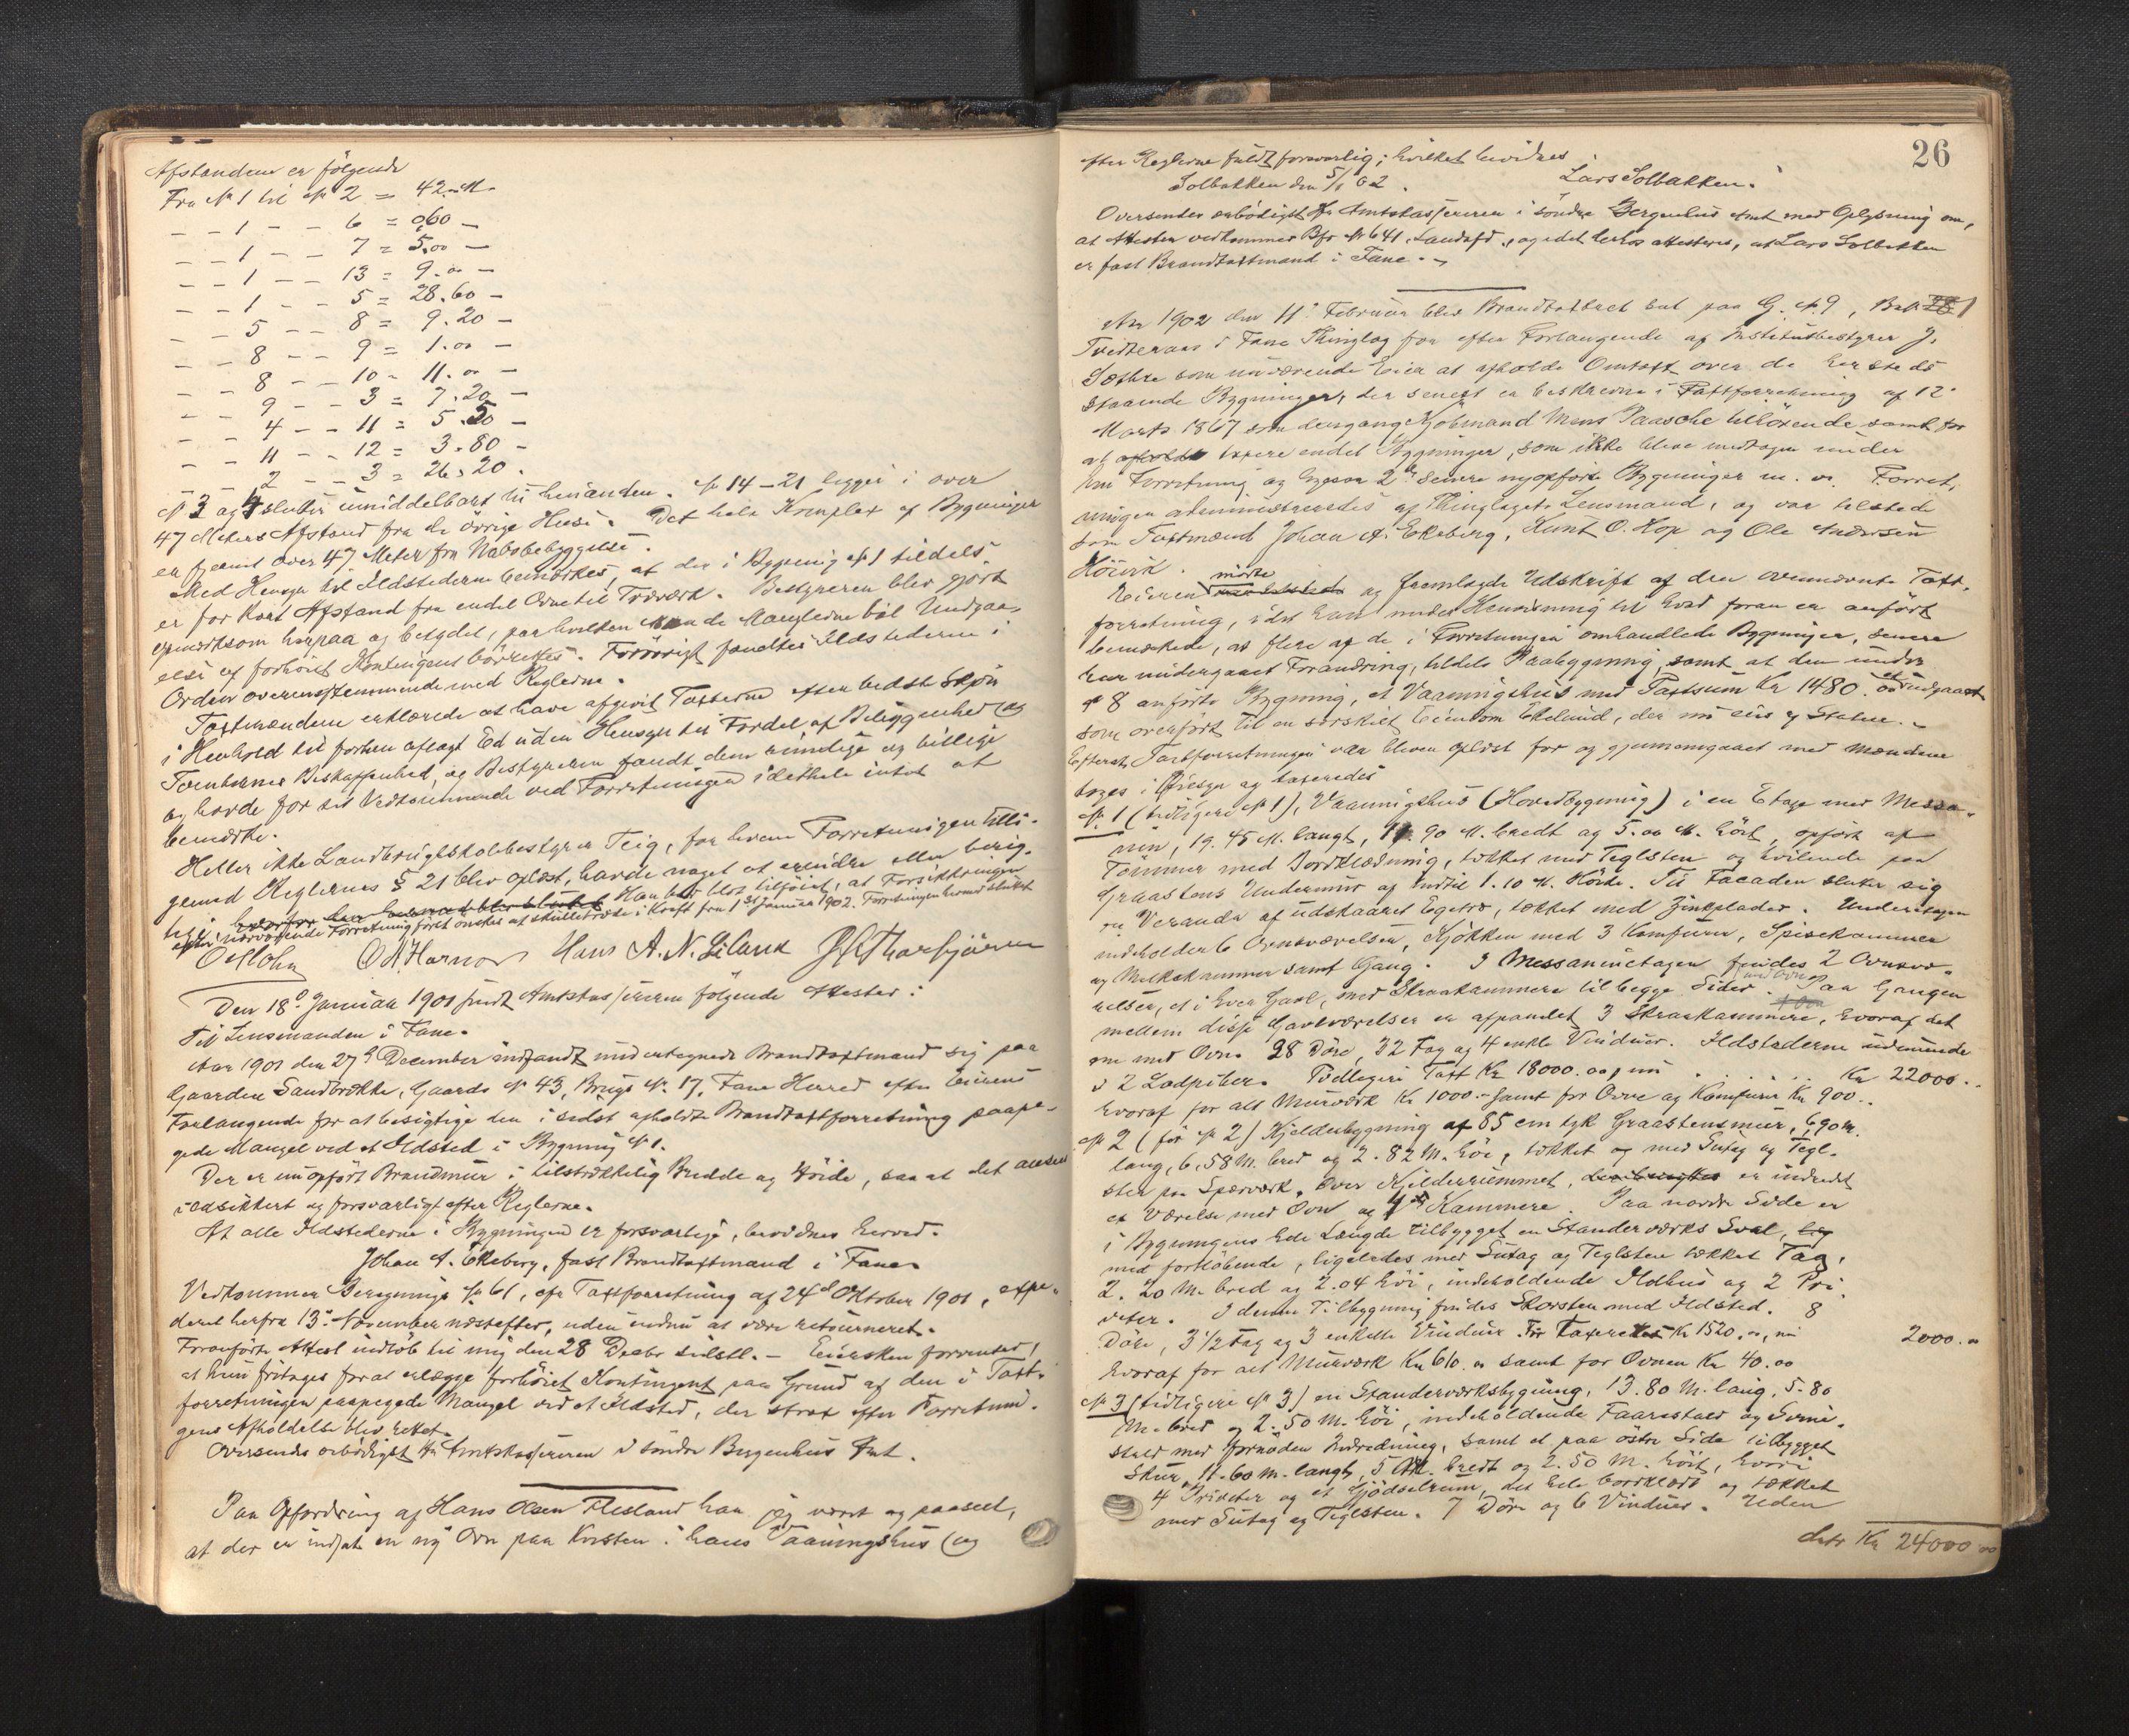 Afstandene er følgende
Fra № 1 til № 2 = 42. M.
— — 1 — — 6 = 060 —
— — 1 — — 7 = 5.00 —
— — 1 — — 13 = 9.00 —
— — 1 — — 5 = 28.60 —
— — 5 — — 8 = 9.20 —
— — 8 — — 9 = 1.00 —
— — 8 — — 10 = 11.00 —
— — 9 — — 3 = 7.20 —
— — 4 — — 11 = 5.50 —
— — 11 — — 12 = 3.80 —
— — 2 — — 3 = 26.20.
№ 3 og 4 slutter umiddelbart til hinanden. № 14–21 ligger i over
47 Meters Afstand fra de øvrige Huse. Det hele Komplex af Bygninger
er fjernet over 47 Meter fra Nabobebyggelse.
Med Hensyn til Ildstederne bemærkes, at der i Bygning № 1 tildels
er for kort Afstand fra endel Ovne til Træværk. Bestyreren blev gjort
opmærksom herpaa og betydet, paa hvilken Maade Manglerne bør Undgaa-
else af forhøiet Kontingent børrettes. Forøvrigt fandtes Ildstederne i
Orden overensstemmende med Reglerne.
Taxtmændene erklærede at have afgivet Taxterne efter bedste Skjøn
i Henhold til forhen aflagt Ed uden Hensyn til Fordel af Beliggenhed og
Tomternes Beskaffenhed, og Bestyreren fandt dem rimelige og billige
og havde for sit Vedkommende ved Forretningen idethele intet at
bemærke.
Heller ikke Landbrugsskolebestyrer Teig, for hvem Forretningen tilli-
gemed Reglernes § 21 blev oplæst, havde noget at erindre eller berig-
tige, Han bad blot tilføiet, at Forsikringen
efter nærværende Forretning først ønskes at skulle træde i Kraft fra 1st Januar 1902. Forretningen hermed sluttet.
O A Harnov Hans A. N. Liland
Den 18de Januar 1901 sendt Amtskassereren følgende Attester:
Til Lensmanden i Fane.
Aar 1901 den 27de December indfandt undertegnede Brandtaxtmand sig paa
Gaarden Sandbrække, Gaards № 43, Brugs № 17, Fane Herred efter Eierens
Forlangende for at besigtige den i sidst afholdte Brandtaxtforretning paape-
gede Mangel ved et Ildsted i Bygning № 1.
Der er nu opført Brandmur i tilstrækkelig Bredde og Høide, saa at det ansees
ildsikkert og forsvarligt efter Reglerne.
At alle Ildstederne i Bygningen er forsvarlige, bevidnes herved.
Johan A. Ekeberg, fast Brandtaxtmand i Fane.
Vedkommer Beregnings № 61, cfr Taxtforretning af 24de Oktober 1901, expe-
deret herfra 13de November næstefter, uden endnu at være retourneret.
Foranførte Attest indløb til mig den 28 Decbr sidstl. — Eiersken forventer,
at hun fritages for at erlægge forhøiet Kontingent paa Grund af den i Taxt-
forretningen paapegede Mangel ved et Ildsted, der strax efter Forretnin-
gens Afholdelse blev rettet.
Oversendes ærbødigst Hr Amtskassereren i søndre Bergenhus Amt.
Paa Opfordring af Hans Olsen Flesland har jeg været og paaseet,
at der er indsat en ny Ovn paa Kvisten i hans Vaaningshus (og
26
efter Reglerne fuldt forsvarlig; hvilket bevidnes
Solbakken den 5/1 02. Lars Solbakken.
Oversendes ærbødigst Hr Amtskassereren i søndre Bergenhus Amt med Oplysning om,
at Attesten vedkommer Bfr № 641, Landafd., og idet herhos attesteres, at Lars Solbakken
er fast Brandtaxtmand i Fane.
Aar 1902 den 11te Februar blev Brandtaxtret sat paa G. № 9, Br№ 1
Tvedteraas i Fane Thinglag for efter Forlangende af Institutbestyrer J.
Sæthre som nuværende Eier at afholde Omtaxt over de hersteds
staaende Bygninger, der senest er beskrevne i Taxtforretning af 12te
Marts 1867 som dengang Kjøbmand Mons Paasche tilhørende samt for
at taxere endel Bygninger, som ikke bleve medtagen under
hin Forretning og hvoraf 2de senere nyopførte Bygninger m. v. Forret-
ningen administreredes af Thinglagets Lensmand, og var tilstede
som Taxtmænd Johan A. Ekeberg, Knut O. Hop og Ole Andersen
Høivik.
Eieren mødte og fremlagde Udskrift af den ovennævnte Taxt-
forretning, idet han under Henvisning til hvad foran er anført
bemærkede, at flere af de i Forretningen omhandlede Bygninger, senere
har undergaaet Forandring, tildels Paabygning, samt at den under
№ 8 anførte Bygning, et Vaaningshus med Taxtsum Kr 1480.00 er udgaaet
som overført til en særskilt Eiendom Ekelund, der nu eies af Staten.
Efterat Taxtforretningen var bleven oplæst for og gjennemgaaet med Mændene
toges i Øiesyn og taxeredes
№ 1 (tidligere № 1), Vaaningshus (Hovedbygning) i en Etage med Messa-
nin, 19.45 M. langt, 11.90 M. bredt og 5.00 M. høit, opført af
Tømmer med Bordklædning, tækket med Teglsten og hvilende paa
Graastens Undermur af indtil 1.10 M. Høide. Til Facaden slutter sig
en Veranda af udskaaret Egetræ, tækket med Zinkplader. Underetagen
indeholder 6 Ovnsværelser, Kjøkken med 3 Komfurer, Spisekammer
og Melkekammer samt Gang. I Messaninetagen findes 2 Ovnsvæ-
relser, et i hver Gavl, med Skraakammere til begge Sider. Paa Gangen
mellem disse Gavlværelser er afpanelet 3 Skraakammere, hvoraf det
ene med Ovn. 28 Døre, 32 Fag og 4 enkle Vinduer. Ildstederne udmunde
i 2 Ladpiber. Tidligere Taxt Kr 18000.00, nu . . . . . . Kr 22000..
hvoraf for alt Murværk Kr 1000.— samt for Ovne og Komfurer Kr 900..
№ 2 (før № 2) Kjelderbygning af 85 cm tyk Graastensmur, 6,90 M.
lang, 6,58 M. bred og 2.82 M. høi, tækket og med Sutag og Tegl-
sten paa Spærværk. Over Kjelderrummet, er indredet
et Værelse med Ovn og 4 Kammere. Paa nordre Side er
i Bygningens hele Længde tilbygget en Standerværks Sval,
med fortløbende, ligeledes med Sutag og Teglsten tækket Tag,
2.20 M. bred og 2.04 høi, indeholdende Ildhus og 2 Pri-
veter. I denne Tilbygning findes Skorsten med Ildsted. 8
Døre, 3 1/2 Fag og 3 enkelte Vinduer. Før Taxeret Kr 1520.00, nu 2000.00
hvoraf for alt Murværk Kr 610.00 samt for Ovnen Kr 40.00
№ 3 (tidligere № 3) en Standerværksbygning, 13.80 M. lang, 5.80
M. bred og 2.50 M. høi, indeholdende Faarestald og Svine-
stald med fornøden Indredning, samt et paa østre Side tilbygget
Skur, 11.60 M. langt, 5 M. bredt og 2.50 M. høit, hvori
4 Priveter og et Gjødselrum, det hele bordklædt og tækket
med Sutag og Teglsten. 7 Døre og 6 Vinduer. Uden
Kr 24000.00